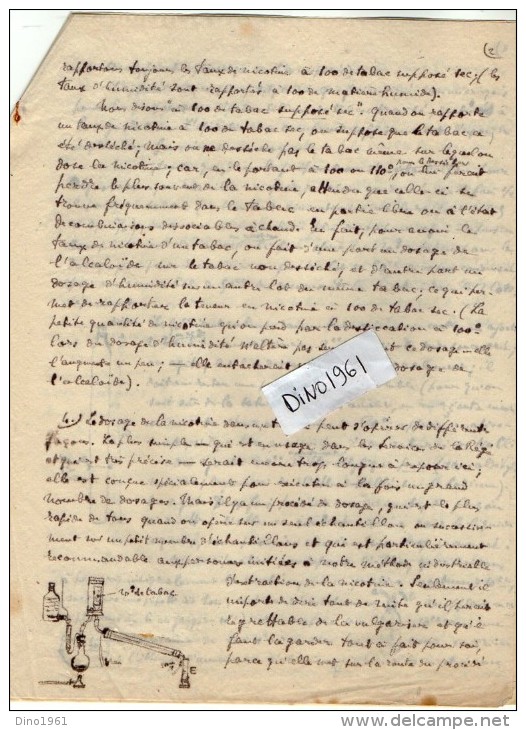 2
rapportons toujours les taux de nicotine à 100 de tabac supposé sec, (les
taux d'humidité sont rapportés à 100 de matière humide).
Nous disons "à 100 de tabac supposé sec". Quand on rapporte
un taux de nicotine à 100 de tabac sec, on suppose que le tabac a
été desséché; mais on ne dessèche pas le tabac même sur lequel on
dose la nicotine; car, en le portant à 100 ou 110°, pour le dessécher, on lui ferait
perdre le plus souvent de la nicotine, attendu que celle-ci se
trouve fréquemment dans le tabac en partie libre ou à l'état
de combinaisons dissociables à chaud. En fait, pour avoir le
taux de nicotine d'un tabac, on fait d'une part un dosage de
l'alcaloïde, sur le tabac non desséché, et d'autre part un
dosage d'humidité sur un autre lot du même tabac, ce qui per-
met de rapporter la teneur en nicotine à 100 de tabac sec. (La
petite quantité de nicotine qui on perd par la dessiccation à 100°
lors du dosage d'humidité n'altère pas ce dosage - elle
l'augmente un peu; - elle entacherait dosage de
l'alcaloïde).
DiNO1961
4.) Le dosage de la nicotine dans peut s'opérer de différentes
façons. La plus simple - qui est en usage dans les services de la Régie
et qui est très précise - serait encore trop longue à exposer ici;
elle est conçue spécialement pour exécuter à la fois un grand
nombre de dosages. Mais il y a un procédé de dosage, qui est le plus
rapide de tous quand on opère sur un seul échantillon ou successive-
ment sur un petit nombre d'échantillons et qui est particulièrement
recommandable aux personnes initiées à notre méthode industrielle
d'extraction de la nicotine. Seulement il
importe de dire tout de suite qu'il serait
regrettable de la vulgariser et qu'il
faut la garder tout à fait pour soi,
parce qu'elle met sur la route du procédé
10gr de tabac
E
Dino1961
www.delcampe.net